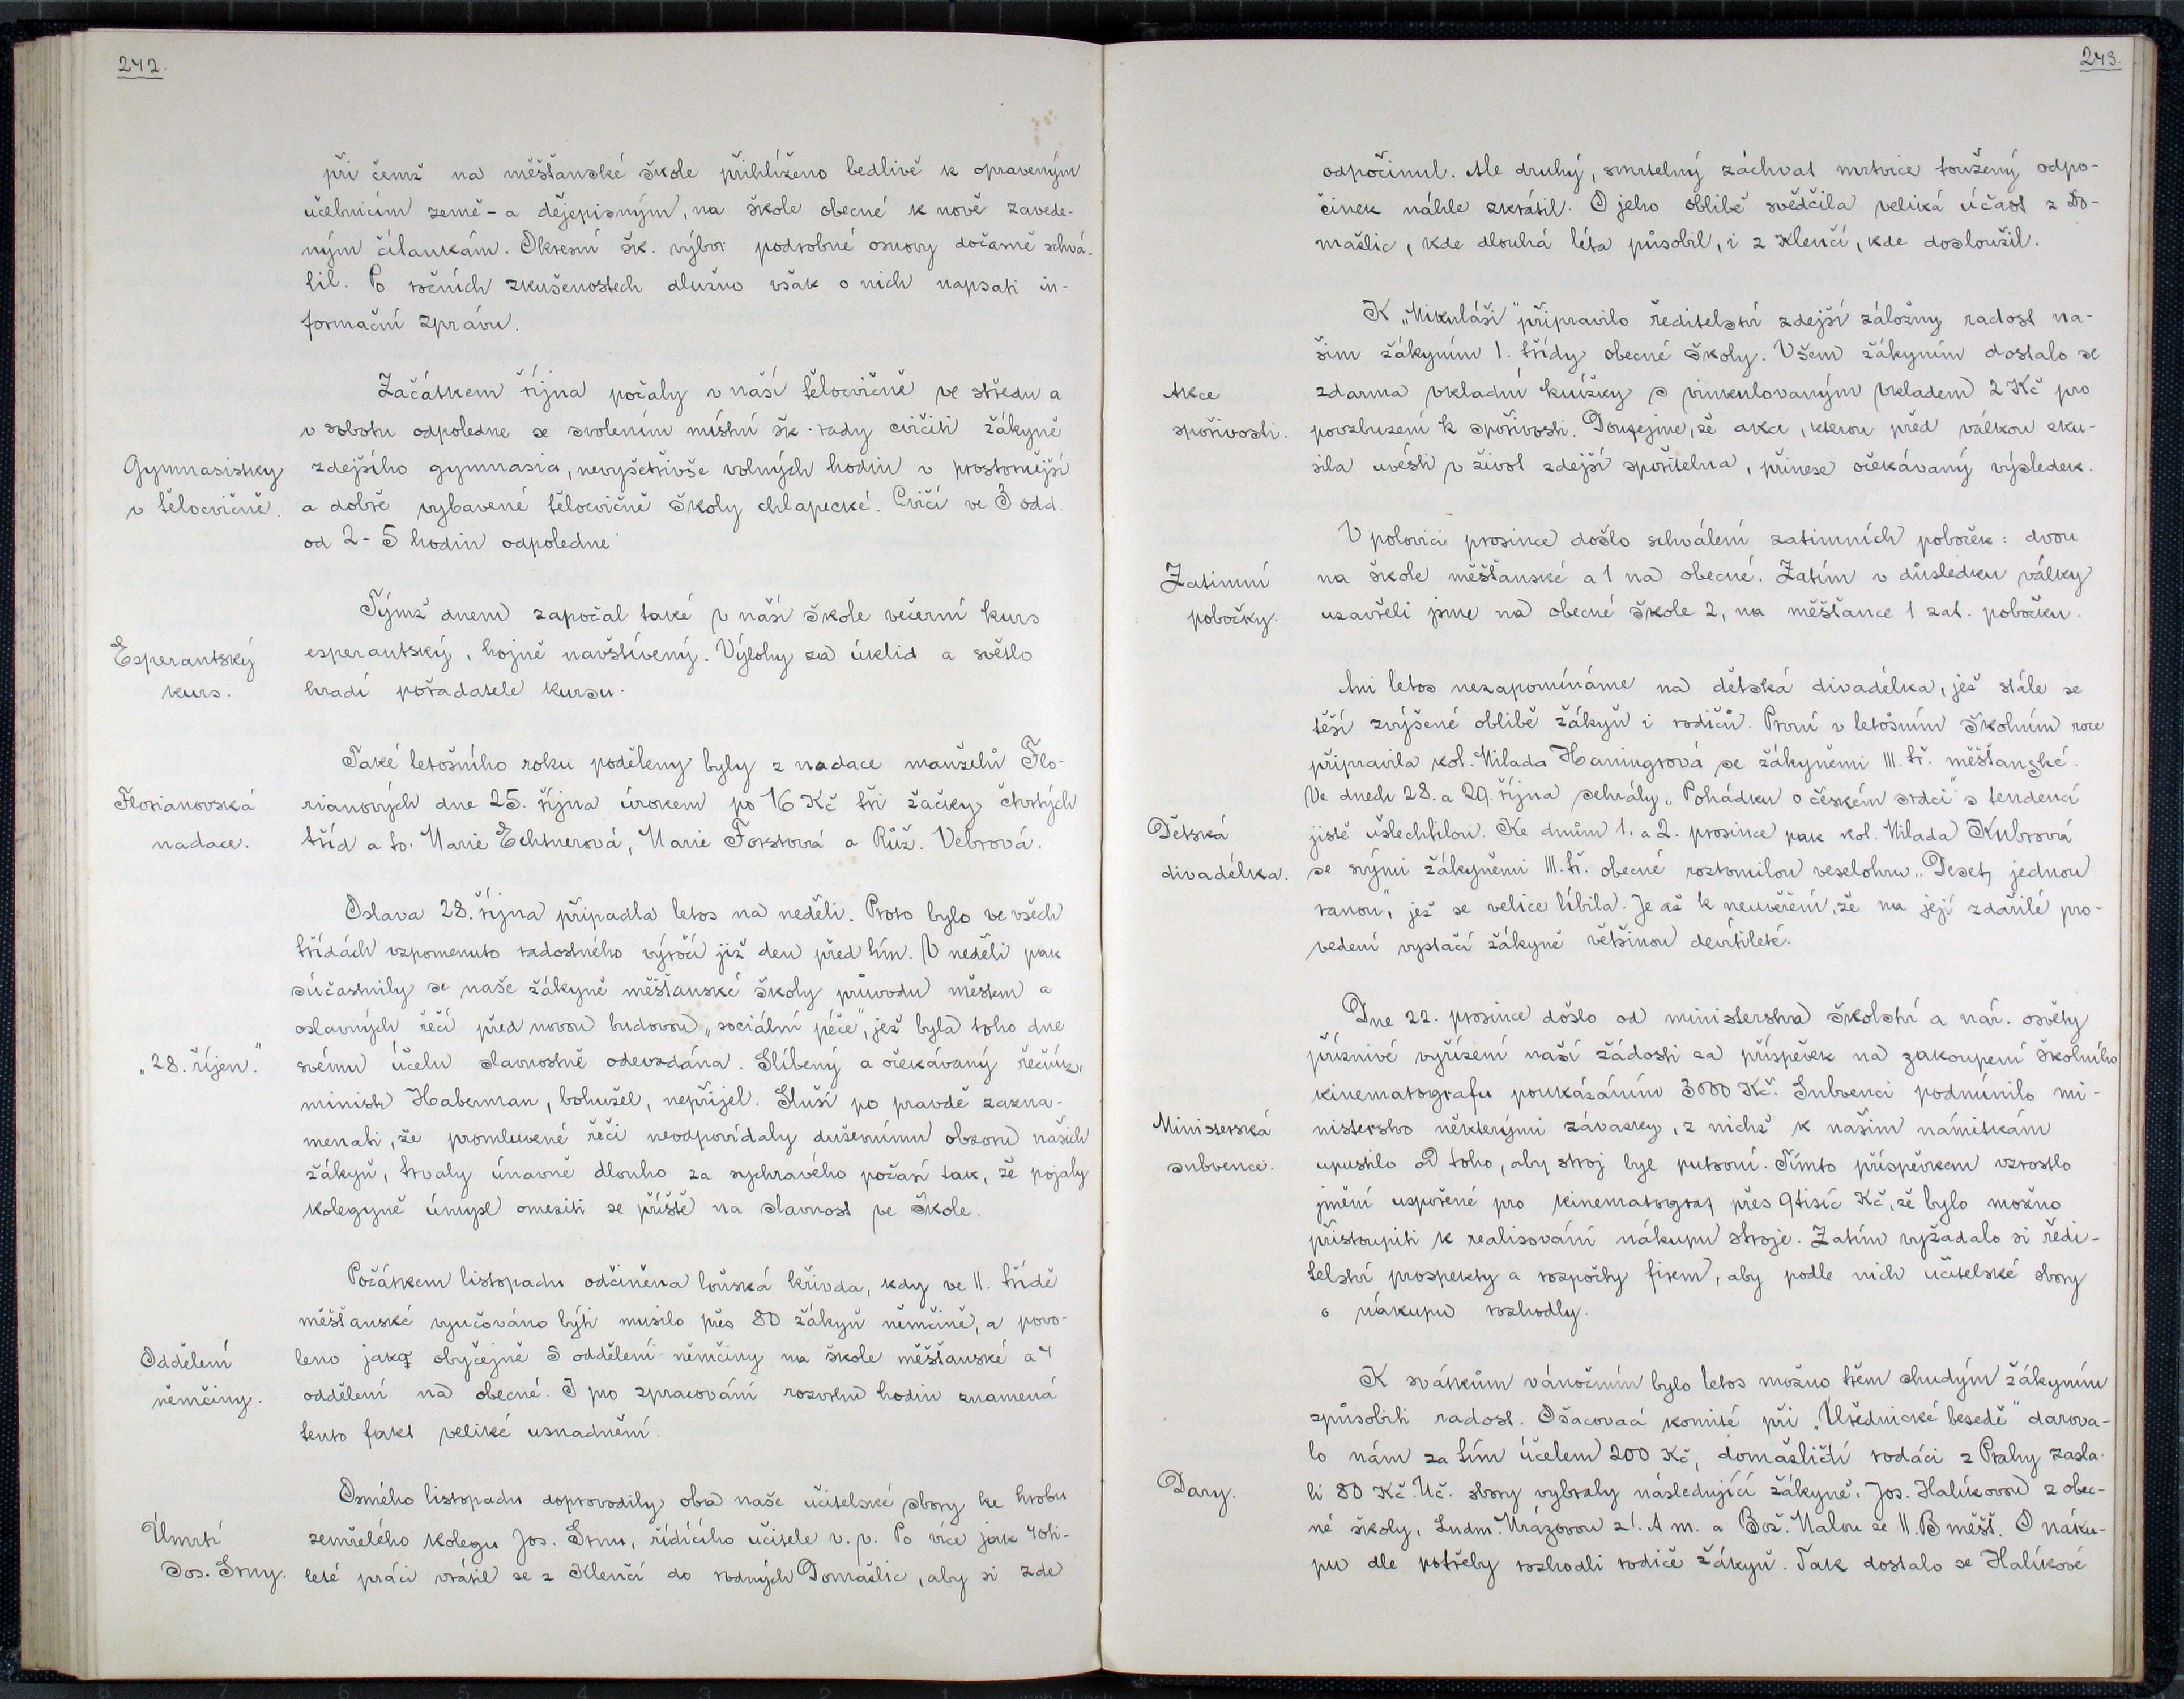 242.
při čemž na měšťanské škole přihlíženo bedlivě k opraveným
učebnicím země- a dějepisným, na škole obecné k nově zavede-
ným čítankám. Okresní šk. výbor podrobné osnovy dočasně schvá-
lil. Po ročních zkušenostech dlužno však o nich napsati in-
formační zprávu.
Začátkem října počaly v naší tělocvičně ve středu a
v sobotu odpoledne se svolením místní šk. rady cvičiti žákyně
Gymnasistky
v tělocvičně.
zdejšího gymnasia, nevyšetřivše volných hodin v prostornější
a dobře vybavené tělocvičně školy chlapecké. Cvičí ve 3 odd.
od 2-5 hodin odpoledne.
Týmž dnem započal také v naší škole večerní kurs
Esperantský
kurs.
esperantský, hojně navštívený. Výlohy za úklid a světlo
hradí pořadatelé kursu.
Také letošního roku poděleny byly z nadace manželů Flo-
Florianovská
nadace.
rianových dne 25. října úrokem po 16 Kč tři žačky čtvrtých
tříd a to: Marie Echtnerová, Marie Forstová a Růž. Vebrová.
Oslava 28. října připadla letos na neděli. Proto bylo ve všech
třídách vzpomenuto radostného výročí již den před tím. V neděli pak
súčastnily se naše žákyně měšťanské školy průvodu městem a
oslavných řečí před novou budovou „sociální péče", jež byla toho dne
„28. říjen."
svému účelu slavnostně odevzdána. Slíbený a očekávaný řečník,
ministr Haberman, bohužel, nepřijel. Sluší po pravdě zazna-
menati, že promluvené řeči neodpovídaly duševnímu obzoru našich
žákyň, trvaly únavně dlouho za sychravého počasí tak, že pojaly
kolegyně úmysl omeziti se příště na slavnost ve škole.
Počátkem listopadu odčiněna loňská křivda, kdy ve II. třídě
měšťanské vyučováno býti musilo přes 80 žákyň němčině, a povo-
Oddělení
němčiny.
leno jako obyčejně 5 oddělení němčiny na škole měšťanské a 4
oddělení na obecné. I pro zpracování rozvrhu hodin znamená
tento fakt veliké usnadnění.
Osmého listopadu doprovodily oba naše učitelské sbory ke hrobu
Úmrtí
Jos. Srny.
zemřelého kolegu Jos. Srnu, řídícího učitele v. v. Po více jak 40ti-
leté práci vrátil se z Klenčí do rodných Domažlic, aby si zde
243.
odpočinul. Ale druhý, smrtelný záchvat mrtvice toužený odpo-
činek náhle zkrátil. O jeho oblibě svědčila veliká účast z Do-
mažlic, kde dlouhá léta působil, i z Klenčí, kde dosloužil.
K „Mikuláši" připravilo ředitelství zdejší záložny radost na-
šim žákyním 1. třídy obecné školy. Všem žákyním dostalo se
Akce
spořivosti.
zdarma vkladní knížky s vinkulovaným vkladem 2 Kč pro
povzbuzení k spořivosti. Doufejme, že akce, kterou před válkou zku-
sila uvésti v život zdejší spořitelna, přinese očekávaný výsledek.
V polovici prosince došlo schválení zatimních poboček: dvou
Zatimní
pobočky.
na škole měšťanské a 1 na obecné. Zatím v důsledku války
uzavřeli jsme na obecné škole 2, na měšťance 1 zat. pobočku.
Ani letos nezapomínáme na dětská divadélka, jež stále se
těší zvýšené oblibě žákyň i rodičů. První v letošním školním roce
připravila kol. Milada Haningrová se žákyněmi III. tř. měšťanské.
Ve dnech 28. a 29. října sehrály „Pohádku o českém srdci" s tendencí
Dětská
divadélka.
jistě ušlechtilou. Ke dnům 1. a 2. prosince pak kol. Milada Kubrová
se svými žákyněmi III. tř. obecné roztomilou veselohru „Deset jednou
ranou", jež se velice líbila. Je až k neuvěření, že na její zdařilé pro-
vedení vystačí žákyně většinou devítileté.
Dne 22. prosince došlo od ministerstva školství a nár. osvěty
příznivé vyřízení naší žádosti za příspěvek na zakoupení školního
kinematografu poukázáním 3000 Kč. Subvenci podmínilo mi-
Ministerská
subvence.
nisterstvo některými závazky, z nichž k našim námitkám
upustilo od toho, aby stroj byl putovní. Tímto příspěvkem vzrostlo
jmění uspořené pro kinematograf přes 9 tisíc Kč, že bylo možno
přistoupiti k realisování nákupu stroje. Zatím vyžádalo si ředi-
telství prospekty a rozpočty firem, aby podle nich učitelské sbory
o nákupu rozhodly.
K svátkům vánočním bylo letos možno třem chudým žákyním
způsobiti radost. Ošacovací komité při „Úřednické besedě" darova-
lo nám za tím účelem 200 Kč, domažličtí rodáci z Prahy zasla-
Dary.
li 80 Kč. Uč. sbory vybraly následující žákyně: Jos. Halíkovou z obec-
né školy, Ludm. Mrázovou z I. A m. a Bož. Malou ze II. B měšť. O náku-
pu dle potřeby rozhodli rodiče žákyň. Tak dostalo se Halíkové